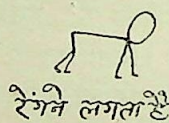 रेंगने लगता है